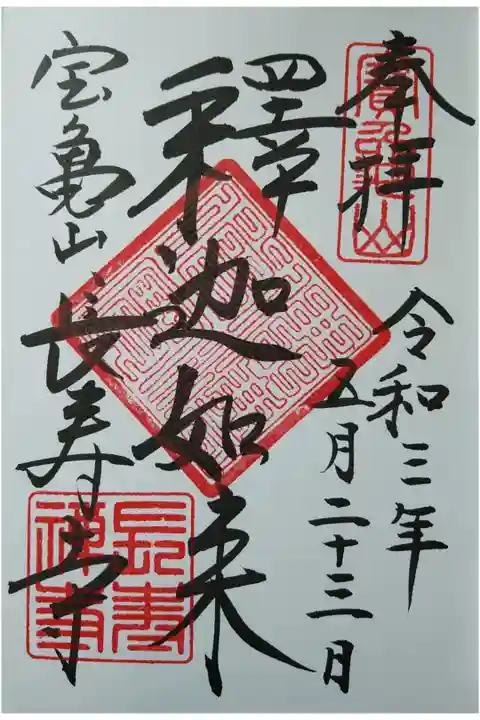 奉拝
寶龜山
令和三年
五月二十三日
釋迦如来
宝亀山
長寿寺
長壽
禪寺